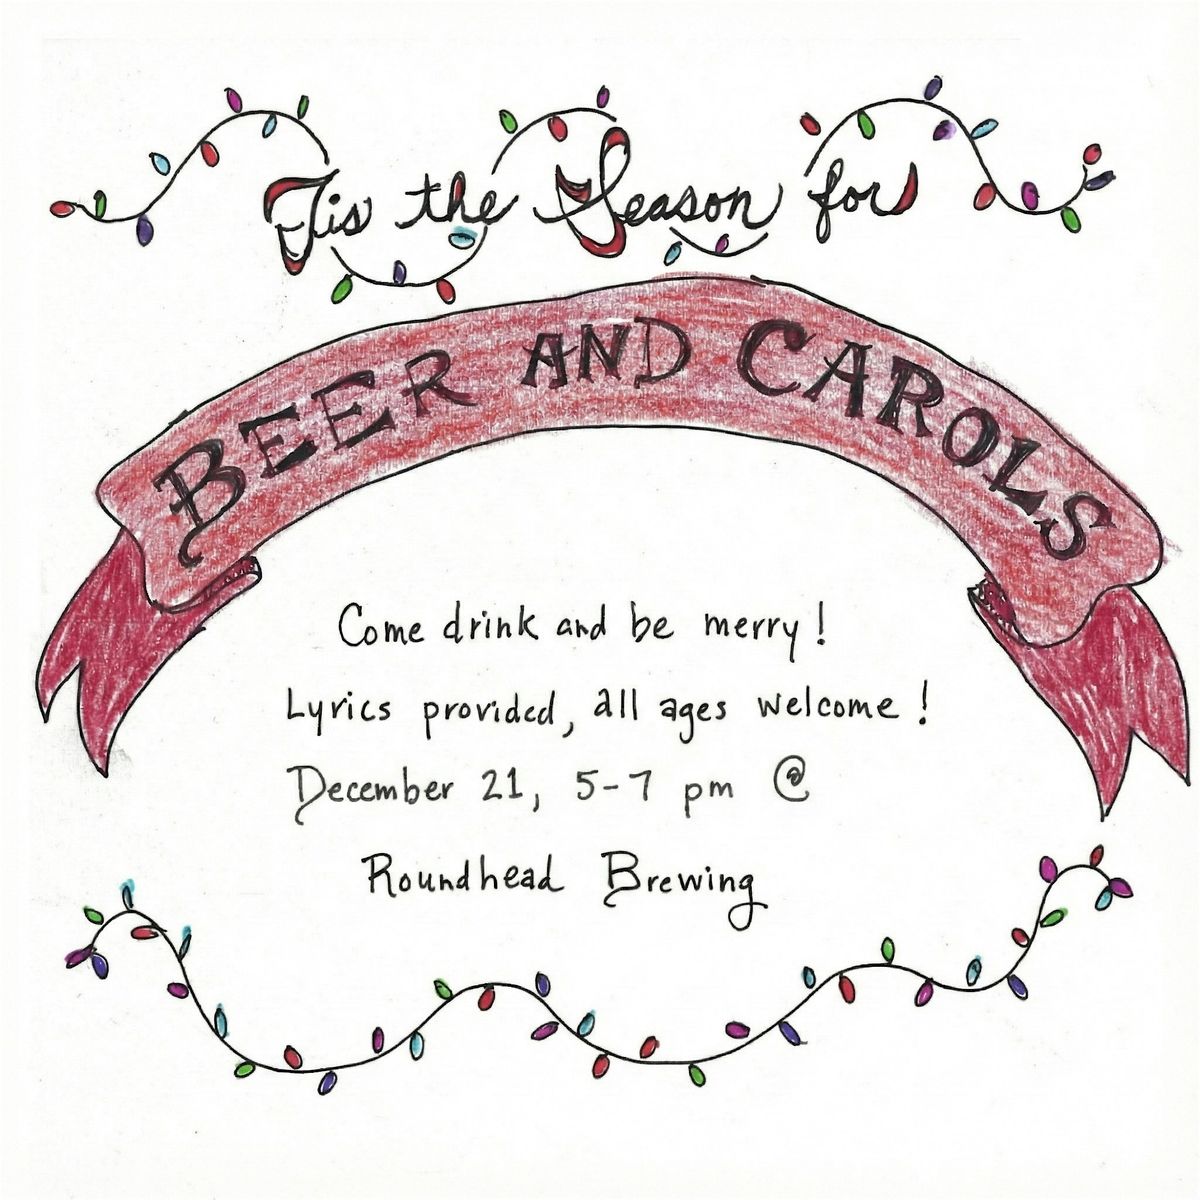 Tis the Season for
BEER AND CAROLS
Come drink and be merry!
Lyrics provided, all ages welcome!
December 21, 5-7 pm @
Roundhead Brewing